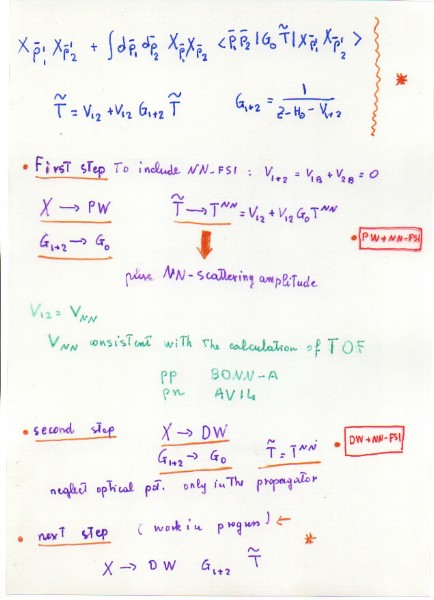 X_p̄'₁ X_p̄'₂ + ∫dp̄₁ dp̄₂ X_p̄₁ X_p̄₂ <p̄₁ p̄₂ |G₀ T̃| X_p̄'₁ X_p̄'₂>
*
T̃ = V₁₂ + V₁₂ G₁₊₂ T̃    G₁₊₂ = 1 / (z - H₀ - V₁₊₂)
• First step To include NN-FSI : V₁₊₂ = V₁B + V₂B = 0
X → PW    T̃ → T^NN = V₁₂ + V₁₂ G₀ T^NN
G₁₊₂ → G₀    • PW+NN-FSI
pure NN-scattering amplitude
V₁₂ = V_NN
V_NN consistent with the calculation of TOF
pp BONN-A
pn AV14
• second step    X → DW    • DW+NN-FSI
G₁₊₂ → G₀    T̃ = T^NN
neglect optical pot. only in the propagator
• next step ( work in progress ) ←
*
X → DW    G₁₊₂    T̃